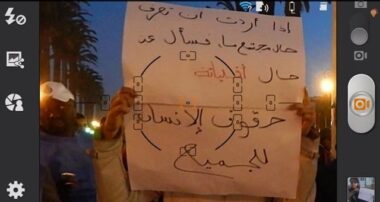 إذا أردت أن تعرف
حال مجتمع ما، فسأل عن
حال أقلياته
حقوق الإنسان
للجميع